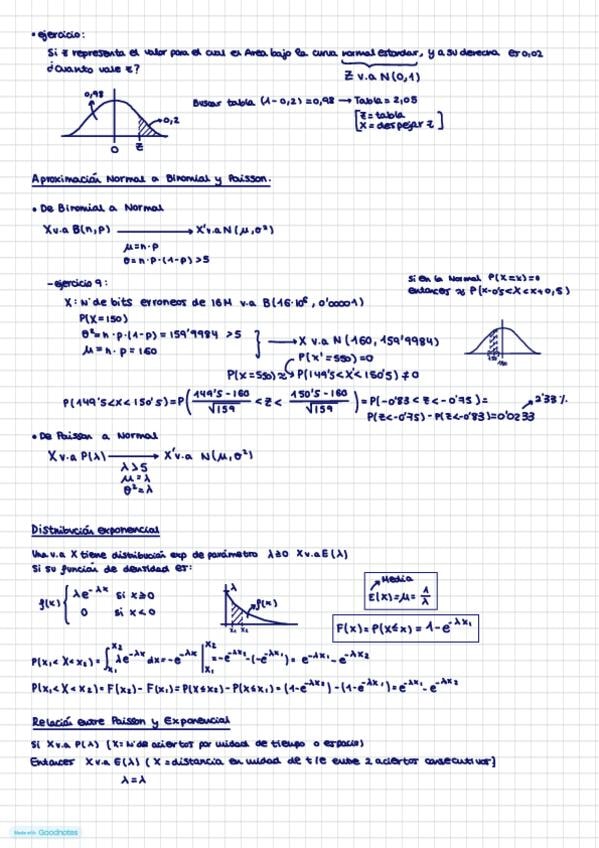 • ejercicio:
Si z representa el valor para el cual el Area bajo la curva normal estandar, y a su derecha es 0,02
¿Cuanto vale z?
Z v.a N(0,1)
0,98
0,2
0 z
Buscar tabla (1-0,2)=0,98 → Tabla = 2,05
[z = tabla
x = despejar z]
Aproximación Normal a Binomial y Poisson.
• De Binomial a Normal
X v.a B(n,p) → X' v.a N(μ,σ²)
μ=n·p
σ=n·p·(1-p)>5
- ejercicio 9:
Si en la Normal P(X=x)=0
entonces ≈ P(x-0'5<X<x+0,5)
X: Nº de bits erroneos de 16M v.a B(16·10⁶, 0'00001)
P(X=150)
σ²=n·p·(1-p)=159'9984 >5
μ=n·p=160
→ X v.a N(160, 159'9984)
P(X'=550)=0
P(X=550)≈ P(149'5<X'<150'5) ≠ 0
P(149'5<X<150'5)=P((149'5-160)/√159 < Z < (150'5-160)/√159)=P(-0'83<Z<-0'75)=
P(Z<-0'75)-P(Z<-0'83)=0'0233
2'33%
• De Poisson a Normal
X v.a P(λ) → X' v.a N(μ,σ²)
λ>5
μ=λ
σ²=λ
Distribución exponencial
Una v.a X tiene distribución exp de parámetro λ≥0 X v.a E(λ)
Si su función de densidad es:
f(x) { λe^-λx si x≥0
0 si x<0
λ
f(x)
x₁ x₂
Media
E(x)=μ=1/λ
F(x)=P(X≤x)=1-e^-λx₁
P(x₁<X<x₂)=∫_x₁^x₂ λe^-λx dx=-e^-λx |_x₁^x₂=-e^-λx₂-(-e^-λx₁)=e^-λx₁-e^-λx₂
P(x₁<X<x₂)=F(x₂)-F(x₁)=P(X≤x₂)-P(X≤x₁)=(1-e^-λx₂)-(1-e^-λx₁)=e^-λx₁-e^-λx₂
Relación entre Poisson y Exponencial
Si X v.a P(λ) (X=Nº de aciertos por unidad de tiempo o espacio)
Entonces X v.a E(λ) (X=distancia en unidad de t/e entre 2 aciertos consecutivos)
λ=λ
Made with Goodnotes